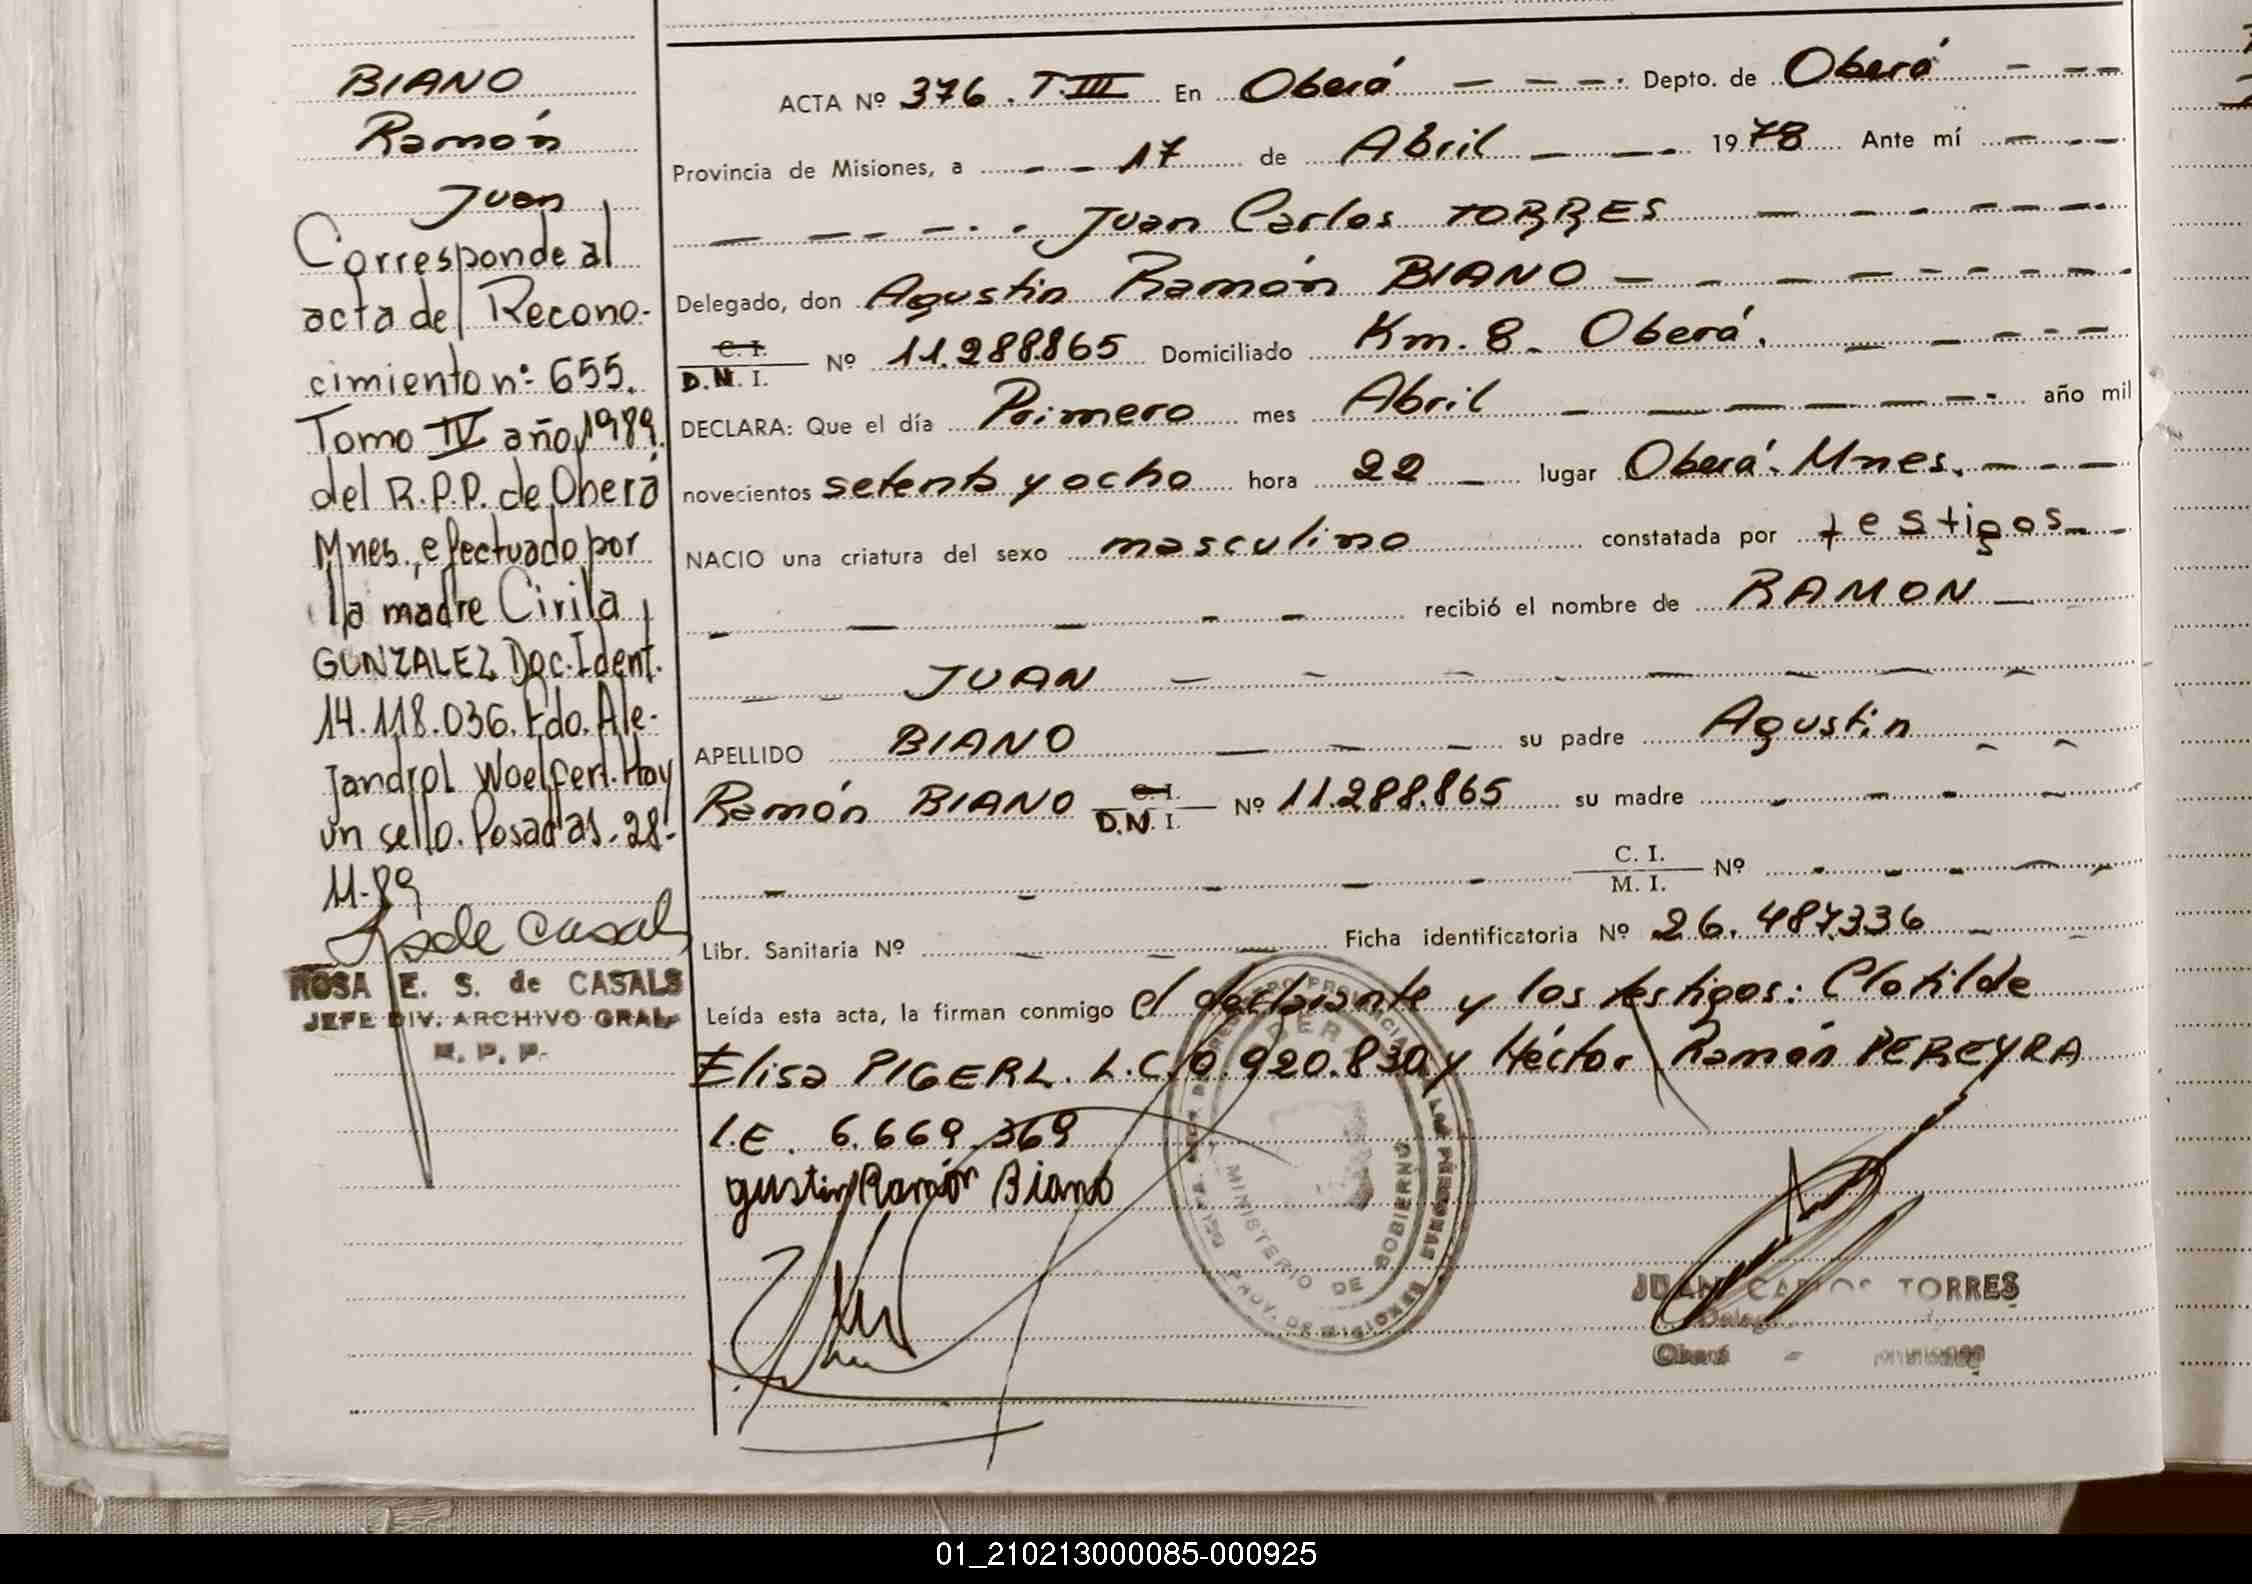 BIANO
Ramón
Juan
Corresponde al
acta de Recono-
cimiento nº 655.
Tomo IV año 1989.
del R.P.P. de Oberá
Mnes., efectuado por
la madre Cirila
GONZALEZ Doc. Ident.
14.118.036. Fdo. Ale-
jandro L Woelfert. Hay
un sello. Posadas. 28-
11-89
de Casals
ROSA E. S. de CASALS
JEFE DIV. ARCHIVO GRAL.
R. P. P.
ACTA Nº 376. T. III En Oberá Depto. de Oberá
Provincia de Misiones, a 17 de Abril 1978 Ante mí
Juan Carlos TORRES
Delegado, don Agustin Ramón BIANO
C. I.
D.N. I. Nº 11.288.865 Domiciliado Km. 8. Oberá.
DECLARA: Que el día Primero mes Abril año mil
novecientos setenta y ocho hora 22 lugar Oberá. Mnes.
NACIO una criatura del sexo masculino constatada por testigos
recibió el nombre de RAMON
JUAN
APELLIDO BIANO su padre Agustin
Ramón BIANO C. I. D.N. I. Nº 11.288.865 su madre
C. I.
M. I. Nº
Libr. Sanitaria Nº Ficha identificatoria Nº 26.487.336
Leída esta acta, la firman conmigo el declarante y los testigos: Clotilde
Elisa PIGERL. L.C. 0.920.830 y Héctor Ramón PEREYRA
L.E. 6.669.369
gustin Ramón Biano
MINISTERIO DE GOBIERNO
PROV. DE MISIONES
JUAN CARLOS TORRES
Oberá -
01_210213000085-000925